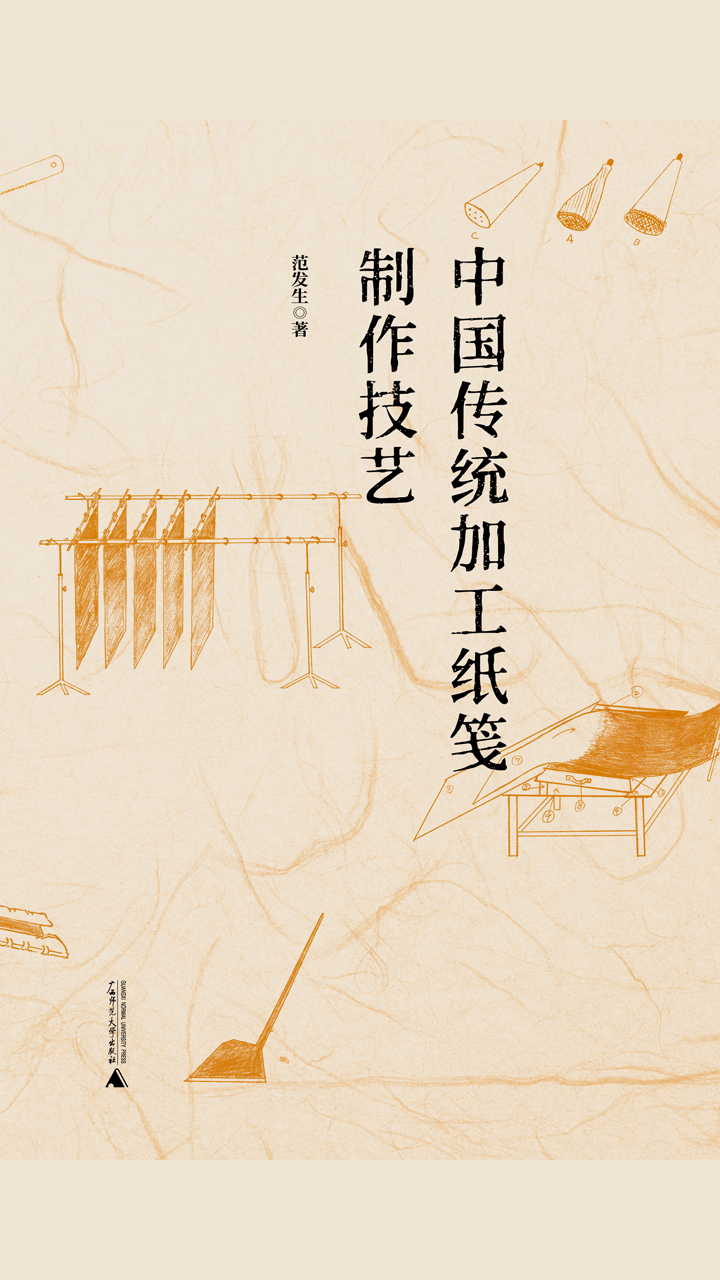 中国传统加工纸笺
制作技艺
范发生◎著
C
A
B
广西师范大学出版社
GUANGXI NORMAL UNIVERSITY PRESS